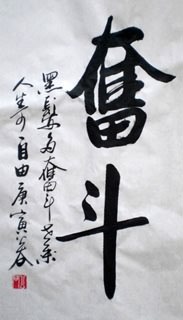 奮斗
黑髮為奮斗
人生可自由庚寅春